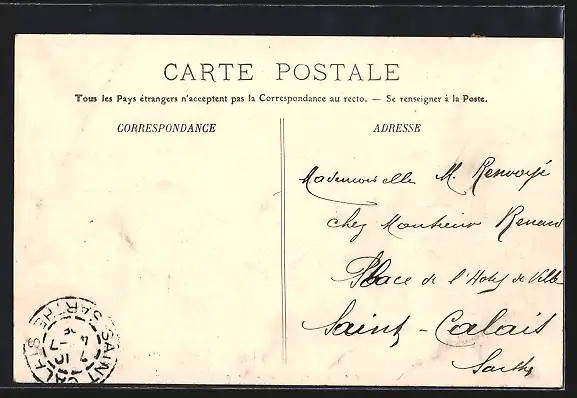 CARTE POSTALE
Tous les Pays étrangers n'acceptent pas la Correspondance au recto. — Se renseigner à la Poste.
CORRESPONDANCE
ADRESSE
Mademoiselle M. Renvoyé
chez Monsieur Renard
Place de l'Hotel de Ville
Saint-Calais
Sarthe
SAINT CALAIS
SARTHE